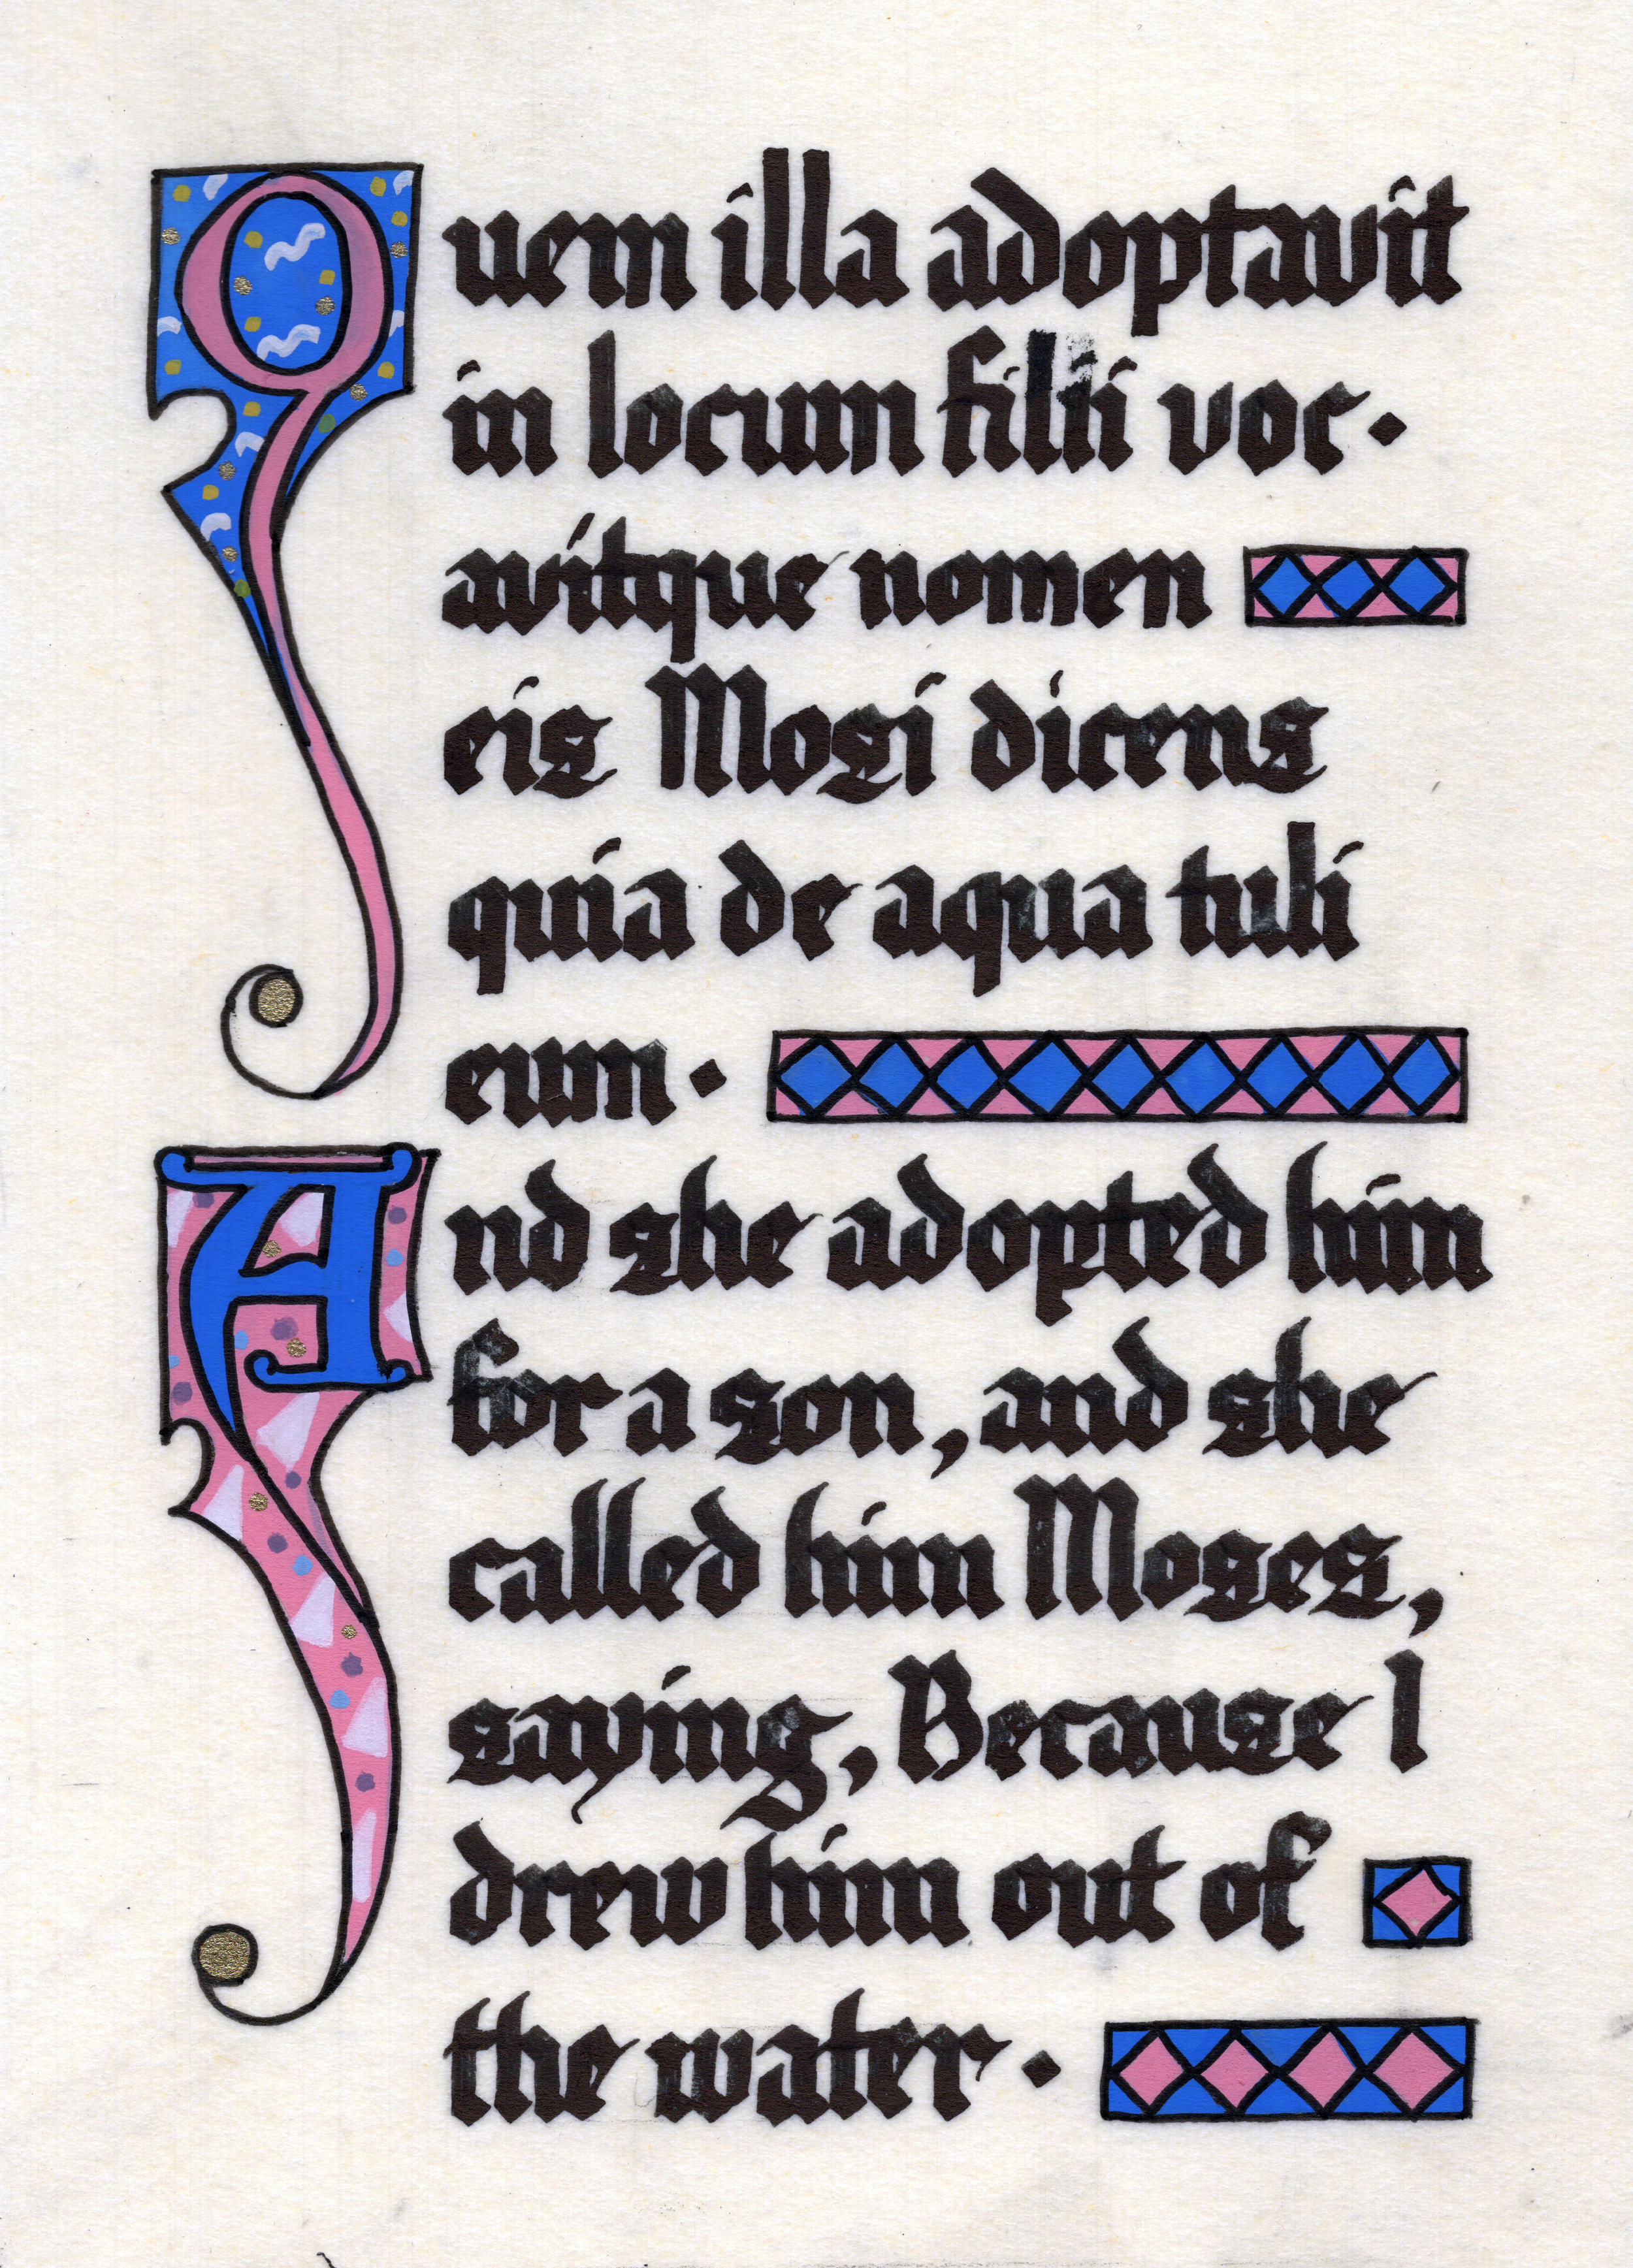 Quem illa adoptavit
in locum filii voc·
avitque nomen
eis Mosi dicens
quia de aqua tuli
eum·
And she adopted him
for a son, and she
called him Moses,
saying, Because I
drew him out of
the water·